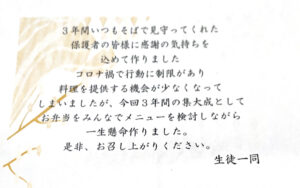 ３年間いつもそばで見守ってくれた
保護者の皆様に感謝の気持ちを
込めて作りました
コロナ禍で行動に制限があり
料理を提供する機会が少なくなって
しまいましたが、今回３年間の集大成として
お弁当をみんなでメニューを検討しながら
一生懸命作りました。
是非、お召し上がりください。
生徒一同